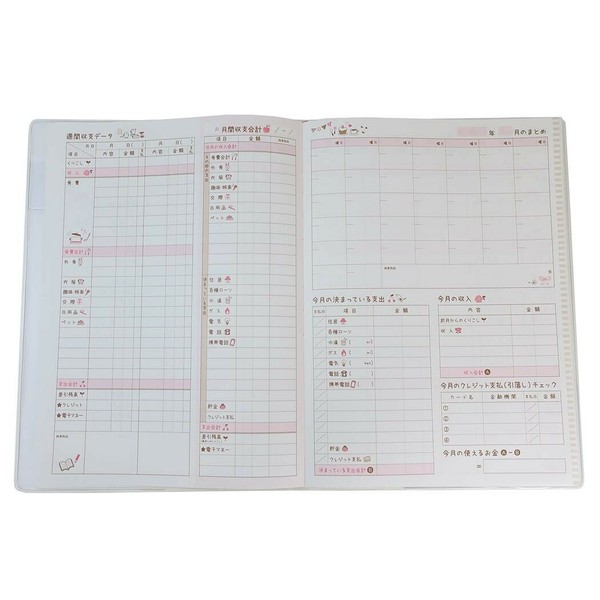 週間収支データ
月 日 月 日( ) 月 日( )
項目 内容 金額 支払 内容 金額 支払
くりこし
収 入
食 費
食費合計
外 食
衣 服
趣味・娯楽
交 際
日用品
ペット
支出合計
差引残高
★クレジット
★電子マネー
月間収支合計
項目 金額
今月の収入合計
食費合計
外 食
衣 服
趣味・娯楽
交 際
日用品
ペット
決まっている支出
住 居
各種ローン
水 道
ガ ス
電 気
携帯電話
貯 金
クレジット支払
支出合計
差引残高
★電子マネー
年 月のまとめ
曜日 曜日 曜日 曜日 曜日 曜日 曜日
今月の決まっている支出
支払日 項 目 金 額
住 居
各種ローン
水 道 ( m³)
ガ ス ( m³)
電 気 ( kw)
電 話 ( )
携帯電話 ( )
貯 金
クレジット支払
決まっている支出合計 B
今月の収入
内 容 金 額
前月からのくりこし
収 入
収入合計 A
今月のクレジット支払(引落し)チェック
カード名 金融機関 支払日 金 額
①
②
③
④
今月の使えるお金 A－B
=